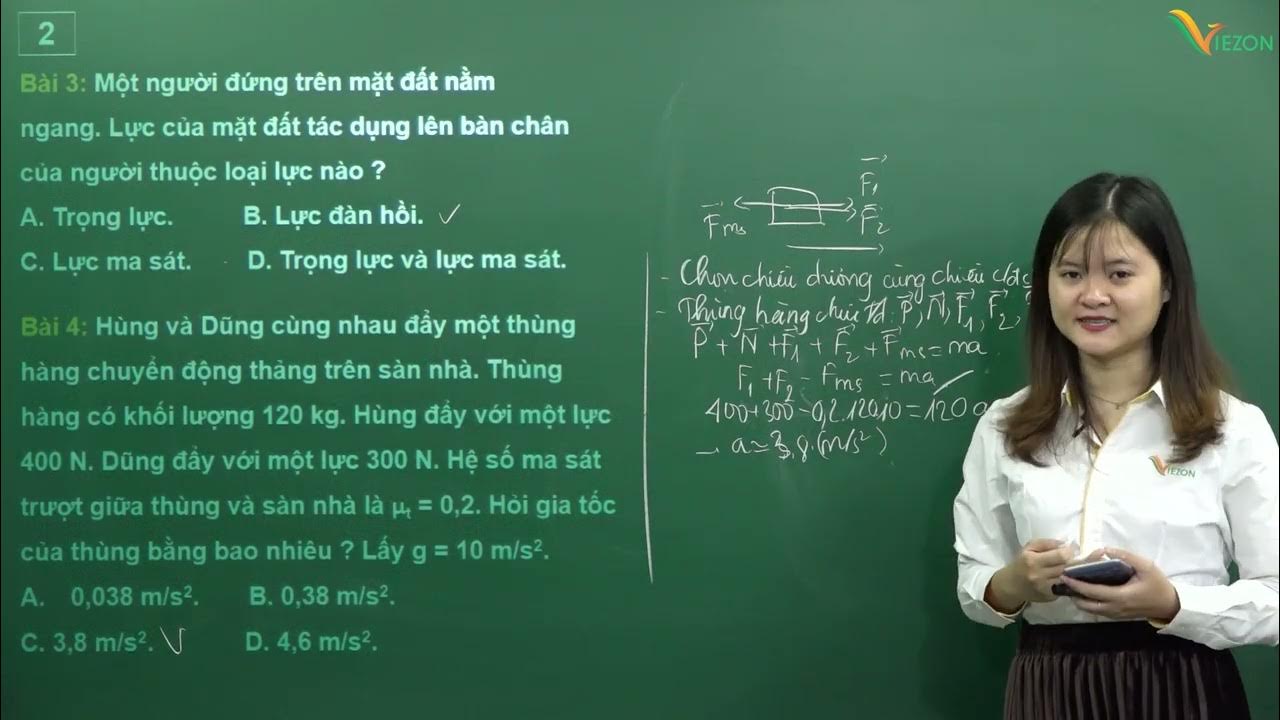 2
VIEZON
Bài 3: Một người đứng trên mặt đất nằm
ngang. Lực của mặt đất tác dụng lên bàn chân
của người thuộc loại lực nào ?
A. Trọng lực. B. Lực đàn hồi. ✓
C. Lực ma sát. D. Trọng lực và lực ma sát.
Bài 4: Hùng và Dũng cùng nhau đẩy một thùng
hàng chuyển động thẳng trên sàn nhà. Thùng
hàng có khối lượng 120 kg. Hùng đẩy với một lực
400 N. Dũng đẩy với một lực 300 N. Hệ số ma sát
trượt giữa thùng và sàn nhà là μt = 0,2. Hỏi gia tốc
của thùng bằng bao nhiêu ? Lấy g = 10 m/s².
A. 0,038 m/s². B. 0,38 m/s².
C. 3,8 m/s². V D. 4,6 m/s².
F₁
Fms F₂
- Chọn chiều dương cùng chiều c/đ
- Thùng hàng chịu td: P, N, F₁, F₂,
P + N + F₁ + F₂ + Fms = ma
F₁ + F₂ - Fms = ma
400+300-0,2.120.10 = 120 a
→ a = 3,8 (m/s²)
VIEZON